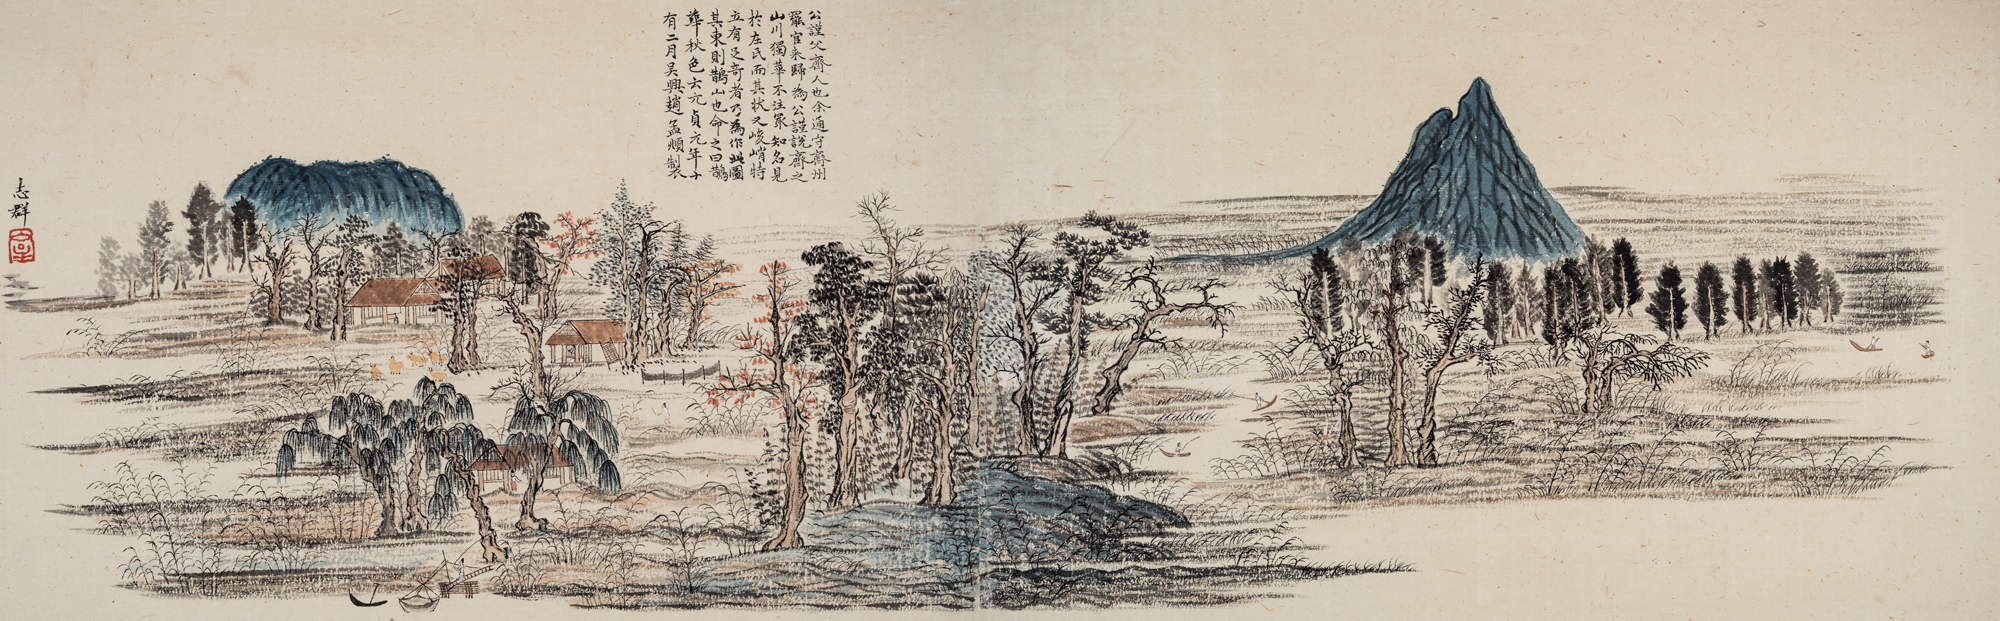 公謹父齊人也余通守齊州
罷官来歸為公謹說齊之
山川獨華不注冣知名見
扵左氏而其状又峻峭特
立有足奇者乃為作此圖
其東則鵲山也命之曰鵲
華秋色云元貞元年十
有二月吳興趙孟頫製
志群